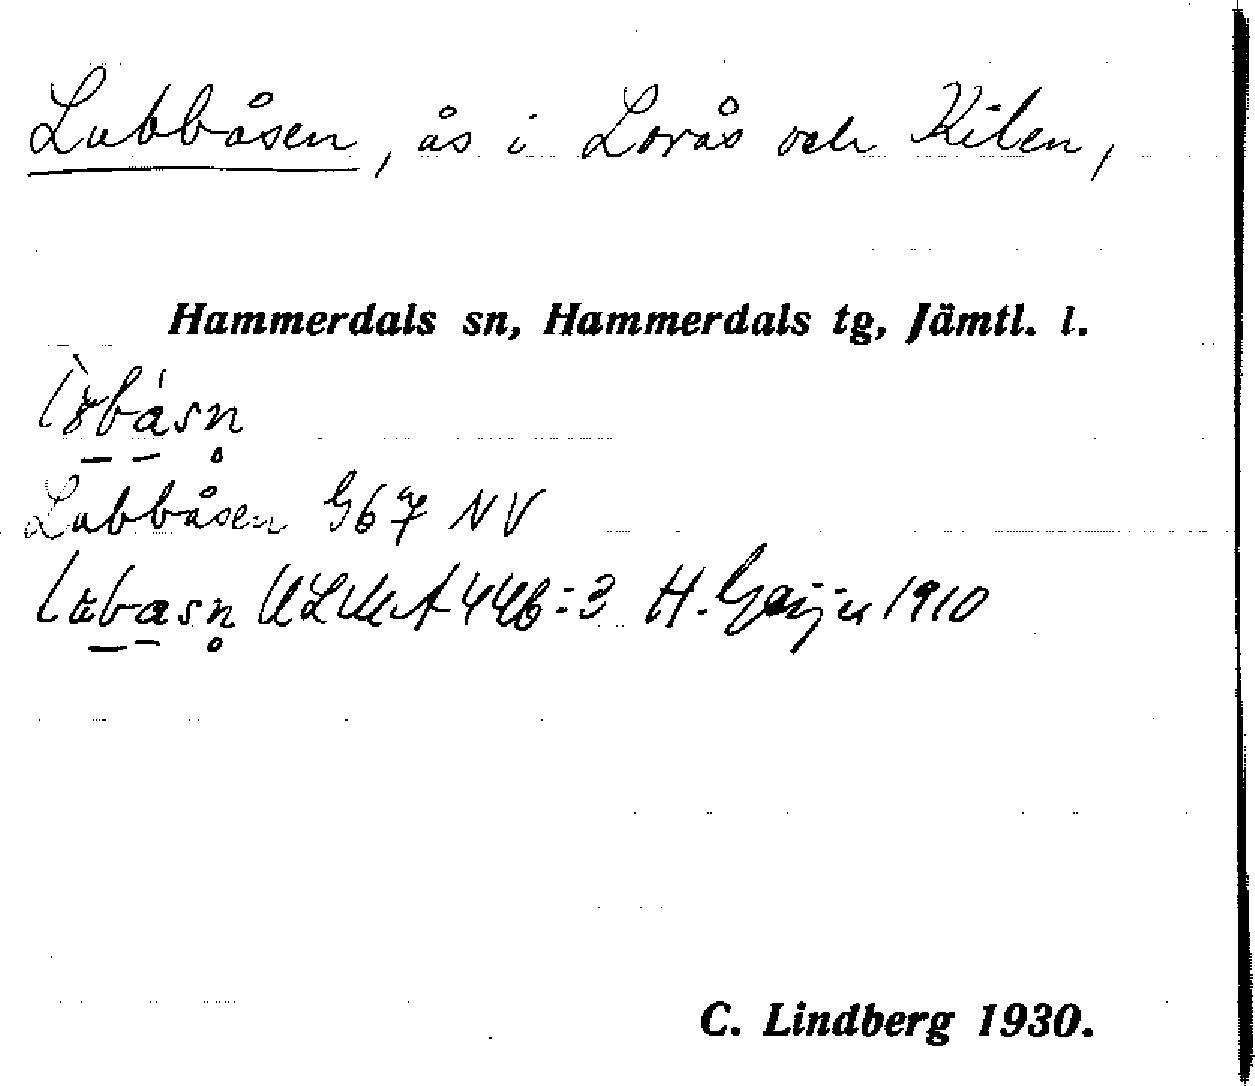 Lubbåsen, ås i Lorås och Kilen,
Hammerdals sn, Hammerdals tg, Jämtl. l.
Lubbåsen G67 NV
ULMA 446:3 H. Geijer 1910
C. Lindberg 1930.